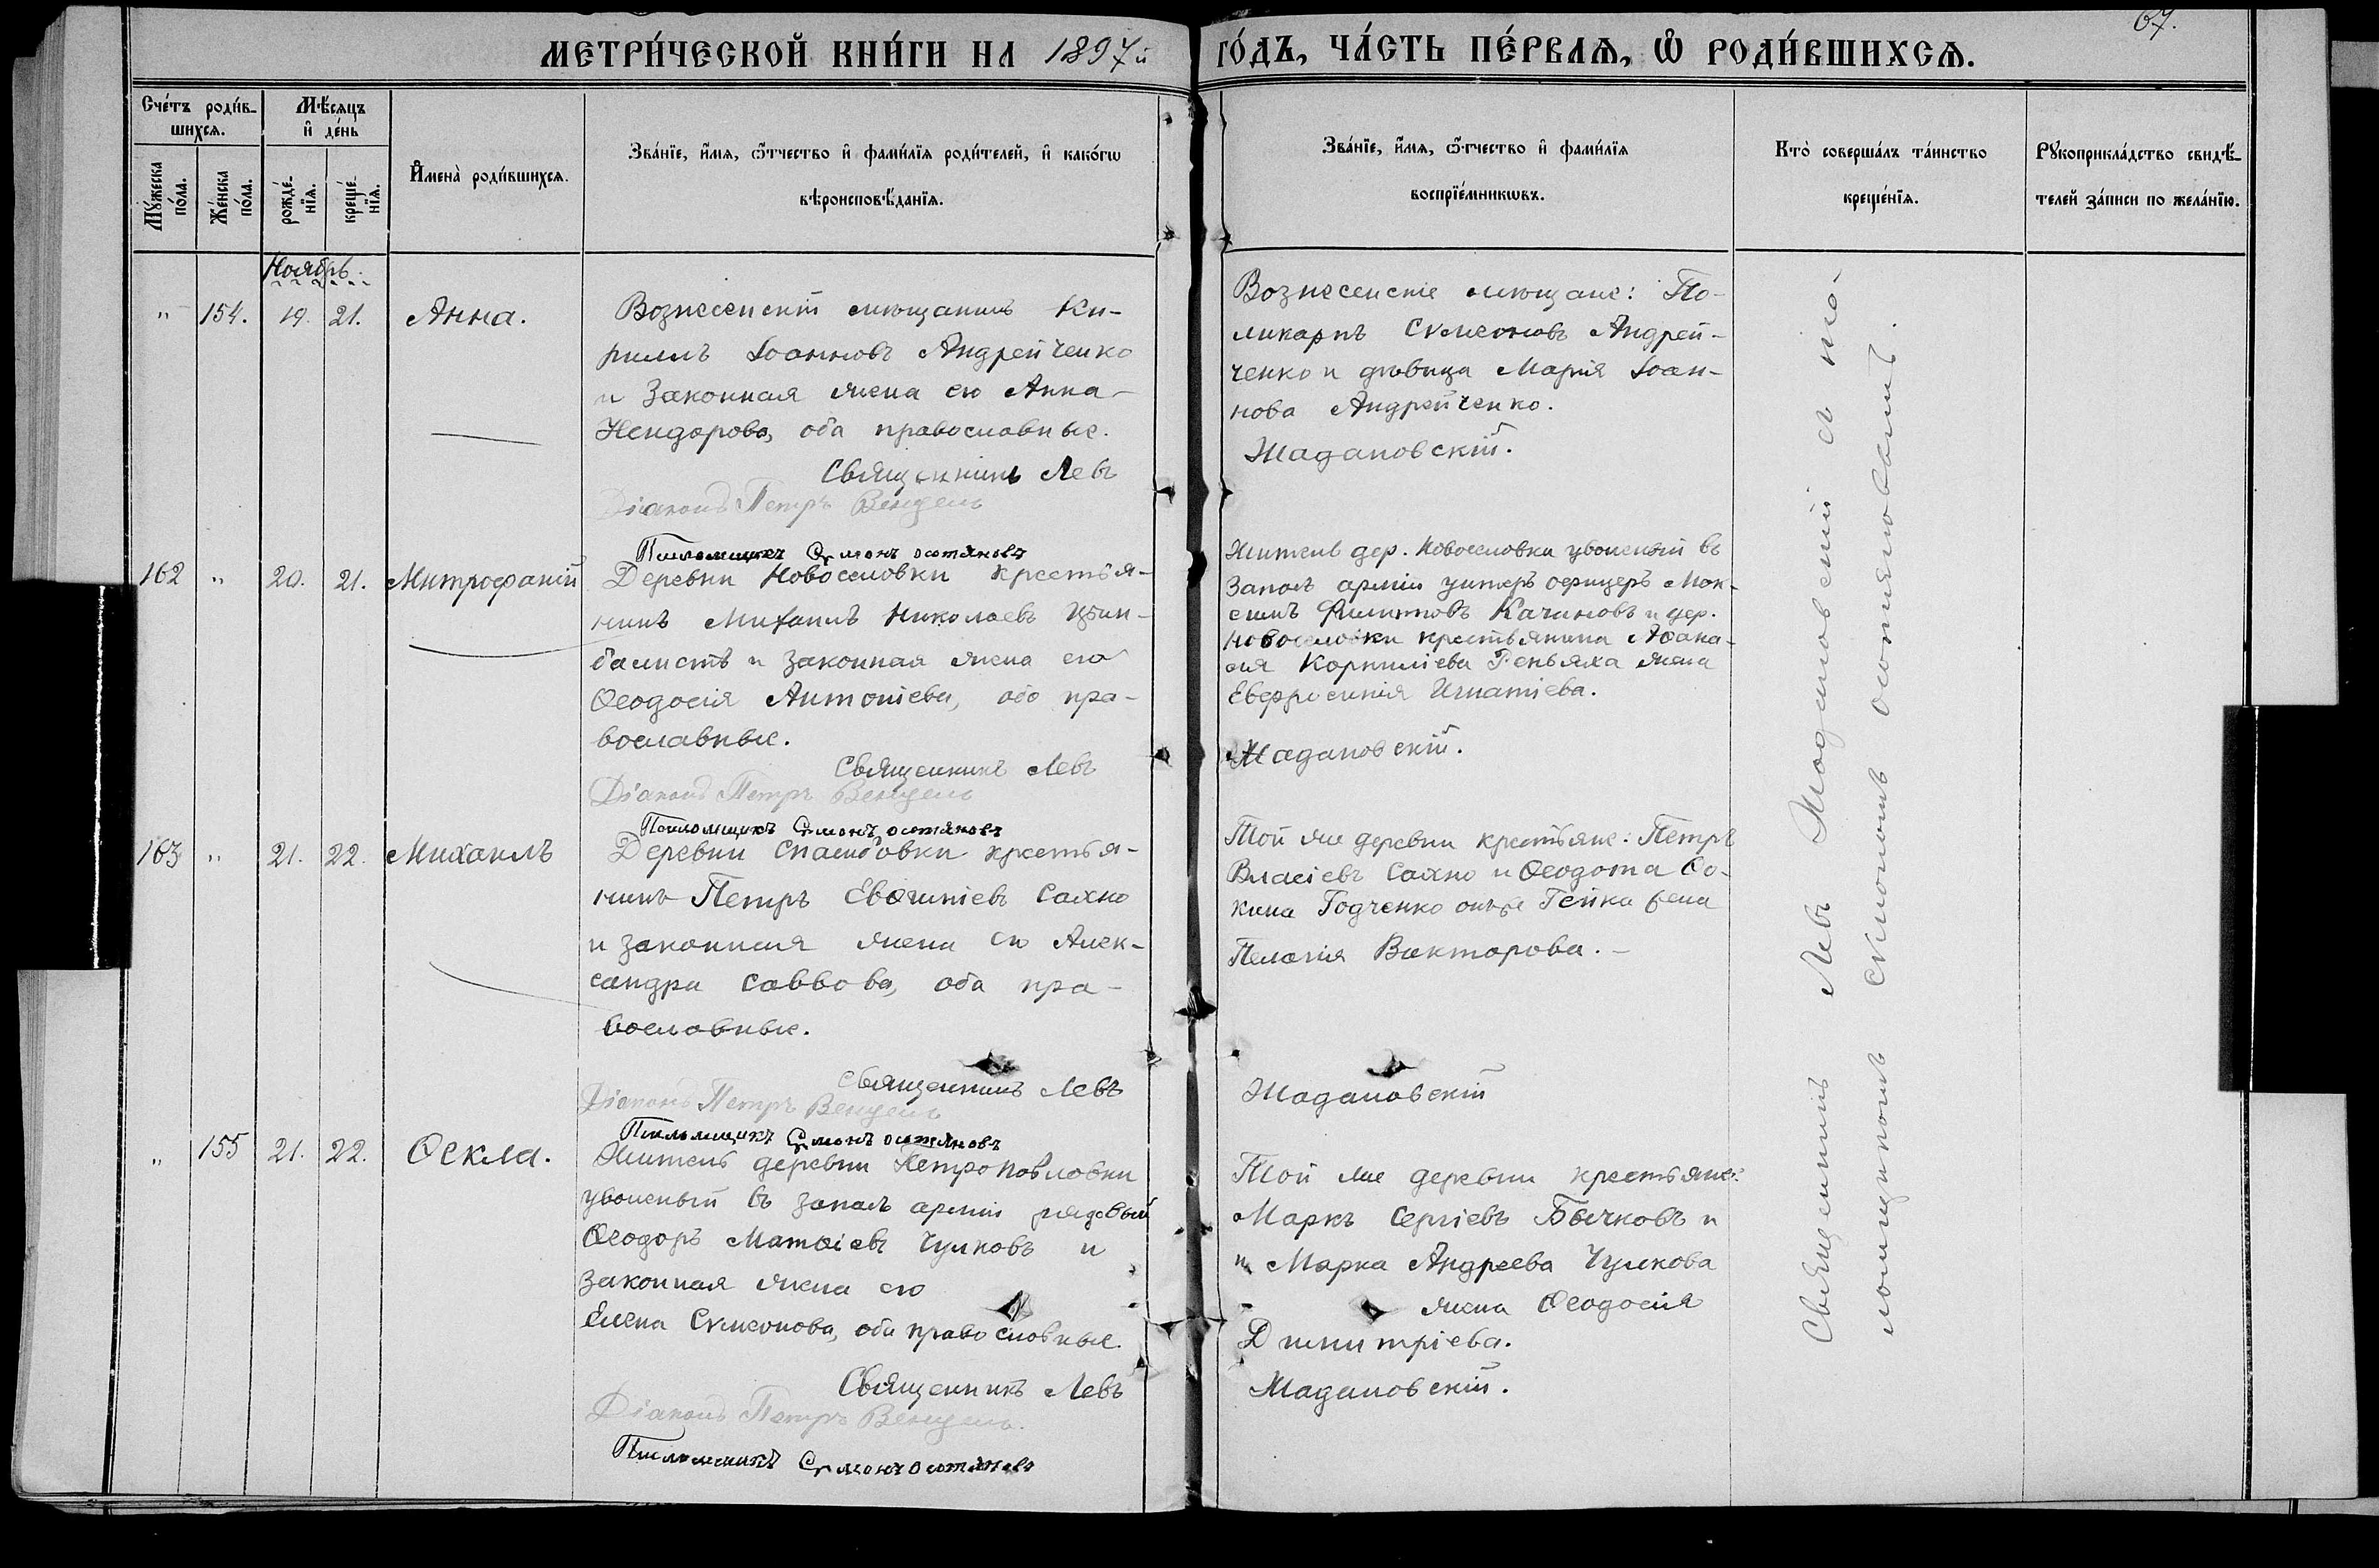 67.
МЕТРИ́ЧЕСКОЙ КНИ́ГИ НА 1897й ГО́ДЪ, ЧА́СТЬ ПЕ́РВАѦ, Ѡ РОДИ́ВШИХСѦ.
Сче́тъ роди́в-
шихсѧ.
Мꙋжеска по́ла.
Же́нска по́ла.
Мѣ́сѧцъ
и҆ де́нь
рожде́-
нїѧ.
креще́-
нїѧ.
И҆мена̀ роди́вшихсѧ.
Зва́нїе, и҆́мѧ, ѻ҆́тчество и҆ фами́лїѧ роди́телей, и҆ како́гѡ
вѣроисповѣ́данїѧ.
Зва́нїе, и҆́мѧ, ѻ҆́тчество и҆ фами́лїѧ
воспрїе́мникѡвъ.
Кто̀ соверша́лъ та́инство
креще́нїѧ.
Рꙋкоприкла́дство свидѣ́-
телей за́писи по жела́нїю.
Ноябрь.
" 154. 19. 21. Анна.
Вознесенскій мѣщанинъ Ки-
риллъ Іоанновъ Андрейченко
и законная жена его Анна
оба православные.
Священникъ Левъ
Діаконъ Петръ Венцель
Псаломщикъ Сѵмонъ
Вознесенскіе мѣщане: По-
ликарпъ Сѵмеоновъ Андрей-
ченко и дѣвица Марія Іоан-
нова Андрейченко.
Жадановскій.
162 " 20. 21. Митрофаній
Деревни Новоселовки крестья-
нинъ Михаилъ Николаевъ Цѣин-
балистъ и законная жена его
Ѳеодосія Антоніева, оба пра-
вославные.
Священникъ Левъ
Діаконъ Петръ Венцель
Псаломщикъ Сѵмонъ
Житель дер. Новоселовки уволеный въ
запасъ арміи унтеръ офицеръ Мак-
симъ Филипповъ Качиновъ и дер.
Новоселовки крестьянина Аѳана-
сія Корниліева Геньяха жена
Евфросинія Игнатіева.
Жадановскій.
163 " 21. 22. Михаилъ
Деревни Спасибовки крестья-
нинъ Петръ Евѳиміевъ Сахно
и законная жена его Алек-
сандра Саввова, оба пра-
вославные.
Священникъ Левъ
Діаконъ Петръ Венцель
Псаломщикъ Сѵмонъ
Той же деревни крестьяне: Петръ
Власіевъ Сахно и Ѳеодота Ѳо-
кина Годченко онъ же Гейка жена
Пелагія Викторова. –
Жадановскій
" 155 21. 22. Ѳекла.
Житель деревни Петропавловки
уволеный въ запасъ арміи рядовый
Ѳеодоръ Матѳіевъ Чумковъ и
законная жена его
Елена Сѵмеонова, оба православные.
Священникъ Левъ
Діаконъ Петръ Венцель.
Псаломщикъ Сѵмонъ
Той же деревни крестьяне:
Маркъ Сергіевъ Бычковъ и
и Марка Андреева Чумкова
жена Ѳеодосія
Димитріева.
Жадановскій.
Священникъ Левъ Жадановскій съ пса-
ломщикомъ Сѵмономъ